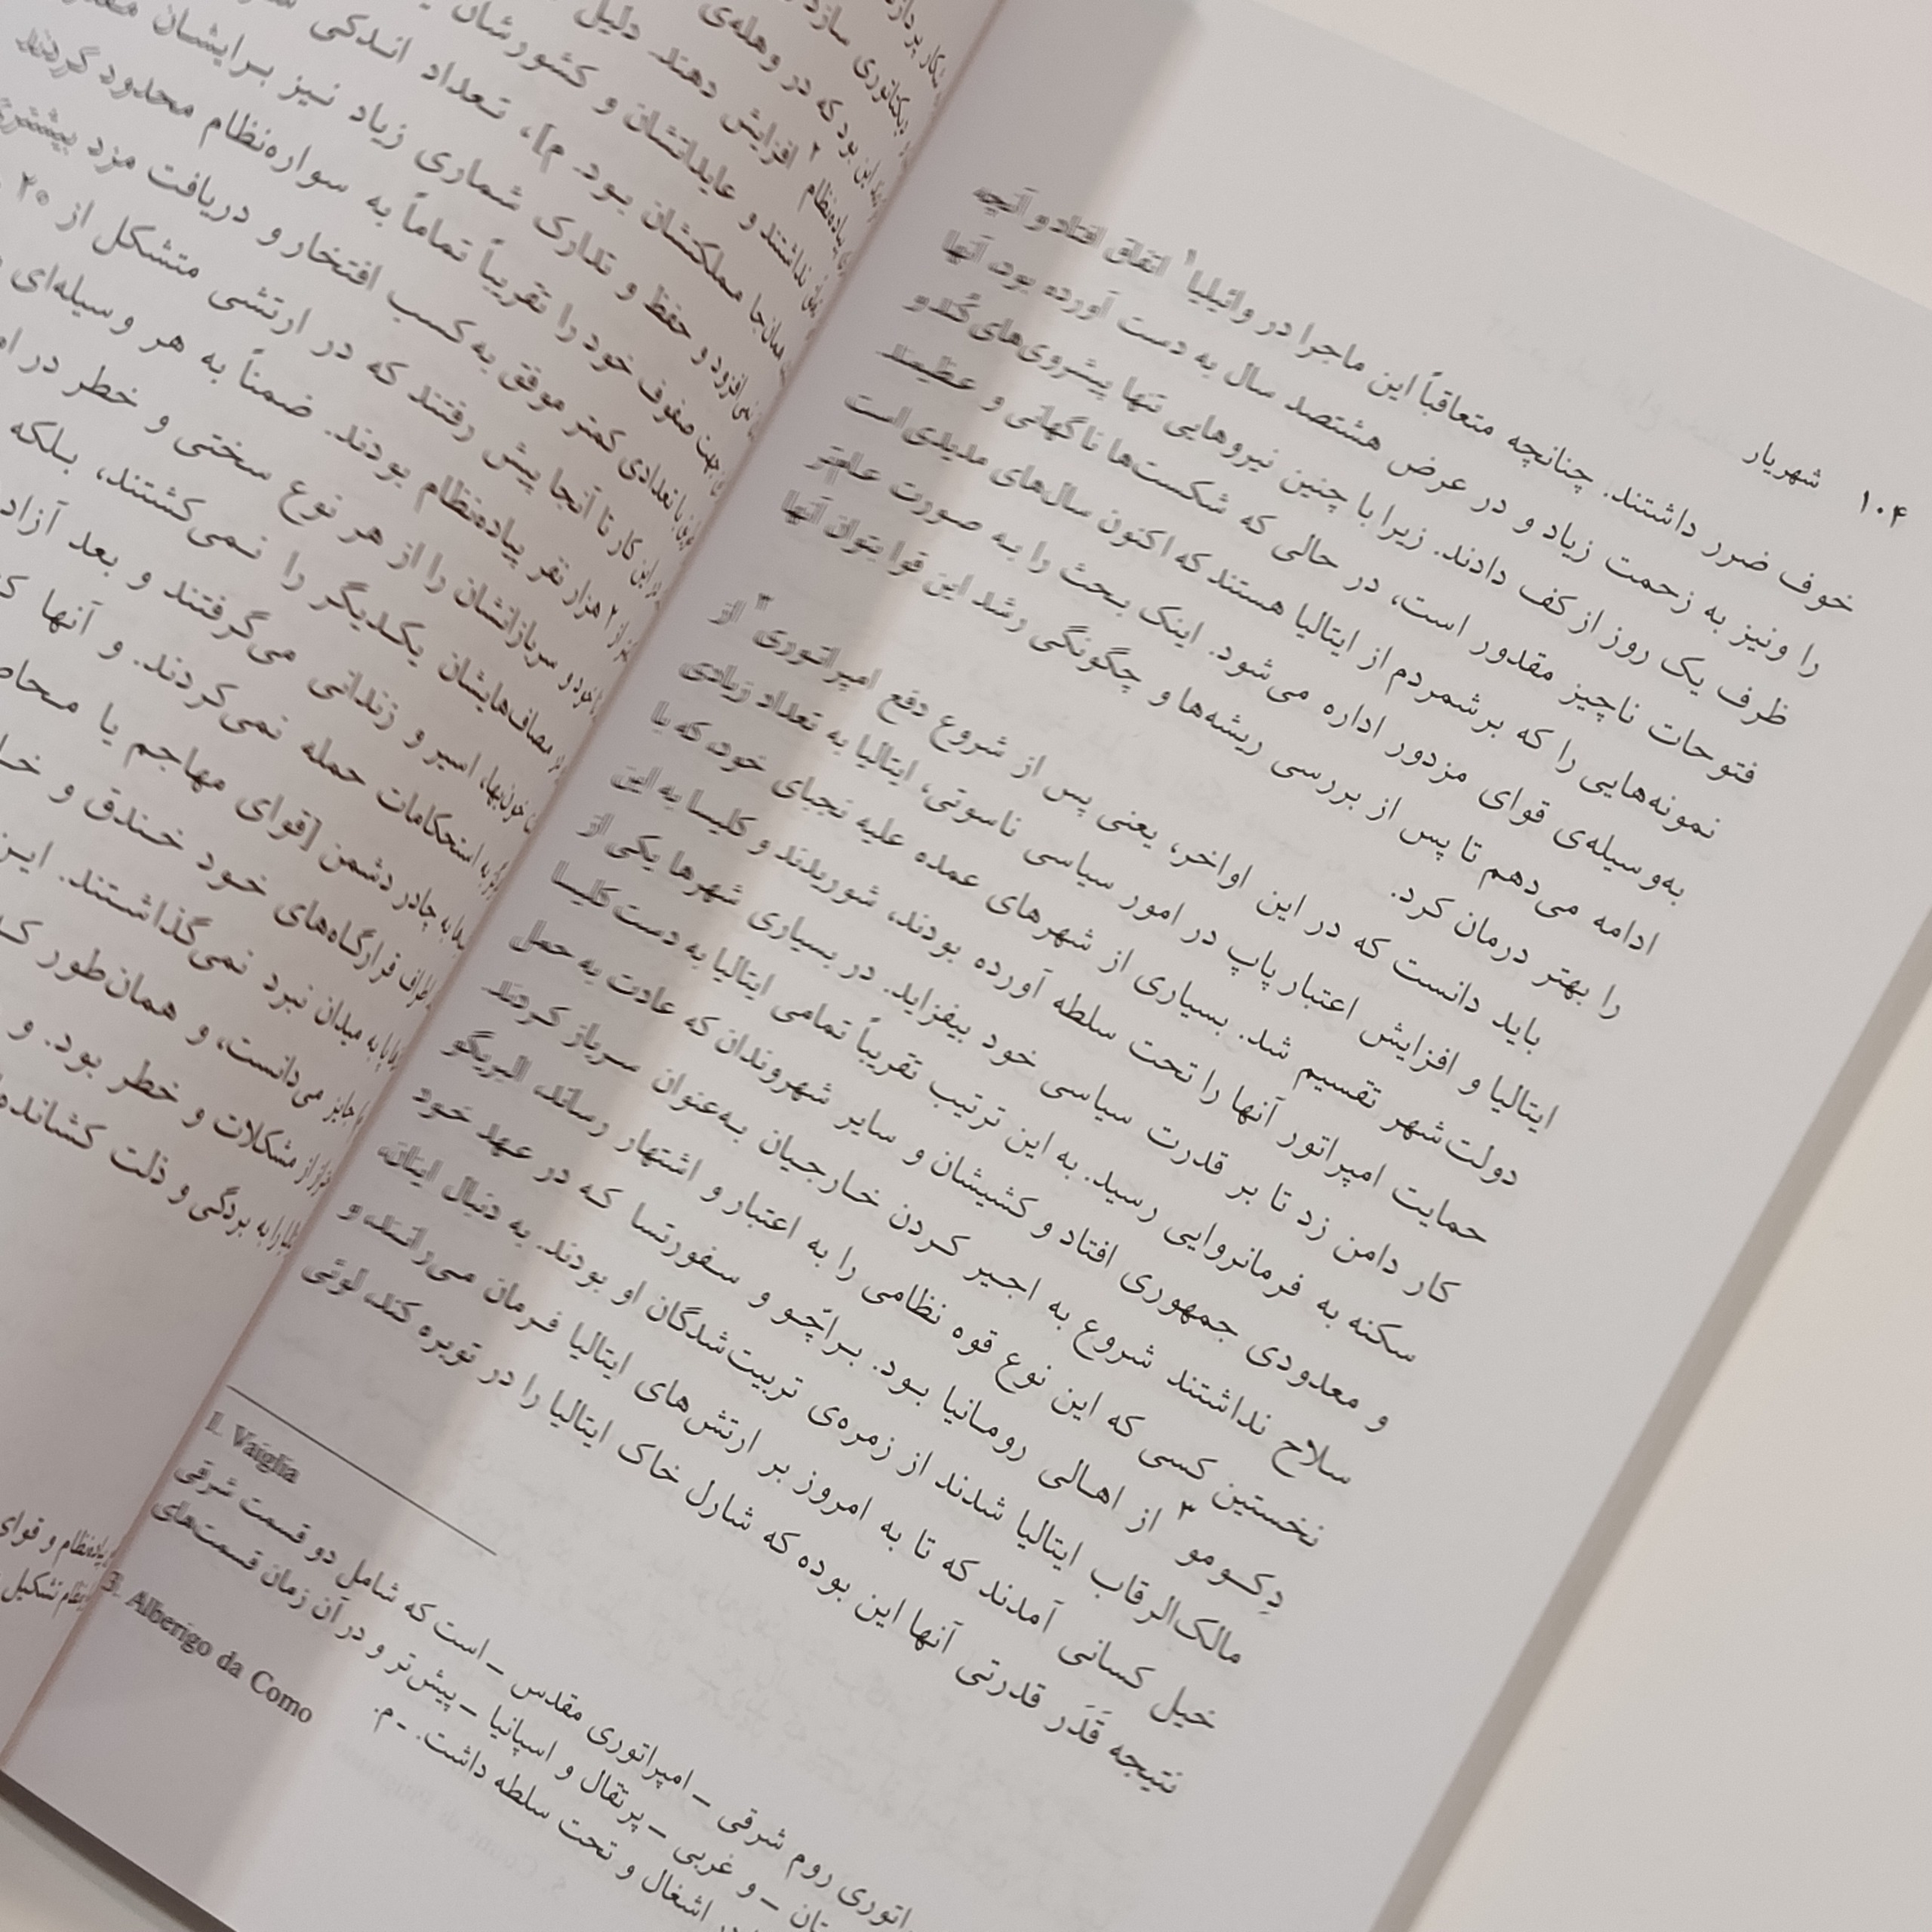 ۱۰۴ شهریار
خوف ضرر داشتند. چنانچه متعاقباً این ماجرا در وائیلیا۱ اتفاق افتاد و آنچه
را ونیز به زحمت زیاد و در عرض هشتصد سال به دست آورده بود، آنها
ظرف یک روز از کف دادند. زیرا با چنین نیروهایی تنها پیشروی‌های کُند و
فتوحات ناچیز مقدور است، در حالی که شکست‌ها ناگهانی و عظیمند
نمونه‌هایی را که برشمردم از ایتالیا هستند که اکنون سال‌های مدیدی است
به‌وسیله‌ی قوای مزدور اداره می‌شود. اینک بحث را به صورت عام‌تر
ادامه می‌دهم تا پس از بررسی ریشه‌ها و چگونگی رشد این قوا بتوان آنها
را بهتر درمان کرد.
باید دانست که در این اواخر، یعنی پس از شروع دفع امپراتوری۲ از
ایتالیا و افزایش اعتبار پاپ در امور سیاسی ناسوتی، ایتالیا به تعداد زیادی
دولت‌شهر تقسیم شد. بسیاری از شهرهای عمده علیه نجبای خود، که با
حمایت امپراتور آنها را تحت سلطه آورده بودند، شوریدند و کلیسا به این
کار دامن زد تا بر قدرت سیاسی خود بیفزاید. در بسیاری شهرها یکی از
سکنه به فرمانروایی رسید. به این ترتیب تقریباً تمامی ایتالیا به دست کلیسا
و معدودی جمهوری افتاد و کشیشان و سایر شهروندان که عادت به حمل
سلاح نداشتند شروع به اجیر کردن خارجیان به‌عنوان سرباز کردند
نخستین کسی که این نوع قوه نظامی را به اعتبار و اشتهار رساند، البریگو
دِکومو ۳ از اهالی رومانیا بود. براچّو و سفورتسا که در عهد خود
مالک‌الرقاب ایتالیا شدند از زمره‌ی تربیت‌شدگان او بودند. به دنبال ایشان،
خیل کسانی آمدند که تا به امروز بر ارتش‌های ایتالیا فرمان می‌رانند، و
نتیجه قَدَر قدرتی آنها این بوده که شارل خاک ایتالیا را در توبره کند، لوئی
1. Vaiglia
اتوری روم شرقی – امپراتوری مقدس – است که شامل دو قسمت شرقی
تان – و غربی – پرتقال و اسپانیا – پیش‌تر و در آن زمان قسمت‌های
اشغال و تحت سلطه داشت. – م.
3. Alberigo da Como
افزایش دهند. دلیل
نداشتند و عایلاتشان و کشورشان
مملکتشان بود. م]، تعداد اندکی
و حفظ و تدارک شماری زیاد نیز برایشان
صفوف خود را تقریباً تماماً به سواره‌نظام محدود گردند
با تعدادی کمتر موفق به کسب افتخار و دریافت مزد بیشتری
این کار تا آنجا پیش رفتند که در ارتشی متشکل از ۲۰
۲ هزار نفر پیاده‌نظام بودند. ضمناً به هر وسیله‌ای
خود و سربازانشان را از هر نوع سختی و خطر در
مصاف‌هایشان یکدیگر را نمی‌کشتند، بلکه
اسیر و زندانی می‌گرفتند و بعد آزاد
به استحکامات حمله نمی‌کردند. و آنها
به چادر دشمن [قوای مهاجم یا
اطراف قرارگاه‌های خود خندق و
به میدان نبرد نمی‌گذاشتند. این
جایز می‌دانست، و همان‌طور
از مشکلات و خطر بود. و
را به بردگی و ذلت
پیاده‌نظام و قوای
تشکیل